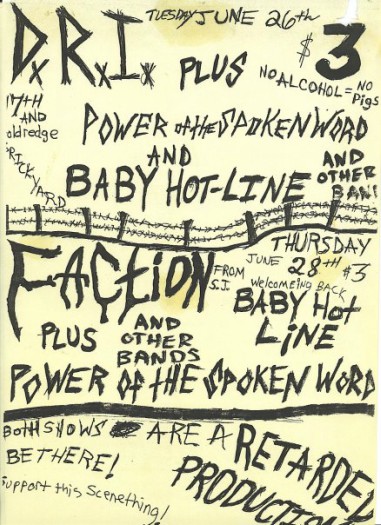 TUESDAY JUNE 26th
D.R.I. PLUS
$3
NO ALCOHOL = NO Pigs
17TH AND oldredge
BRICKYARD
POWER of the SPOKEN WORD
AND
BABY HOT-LINE
AND OTHER BAN
THURSDAY JUNE 28TH $3
FACTiON FROM S.J.
welcomeing BACK
BABY Hot LiNE
PLUS
AND OTHER BANDS
POWER OF THE SPOKEN WORD
BOTH SHOWS ARE A RETARDED PRODUCTION
BE THERE!
Support this Scenething!